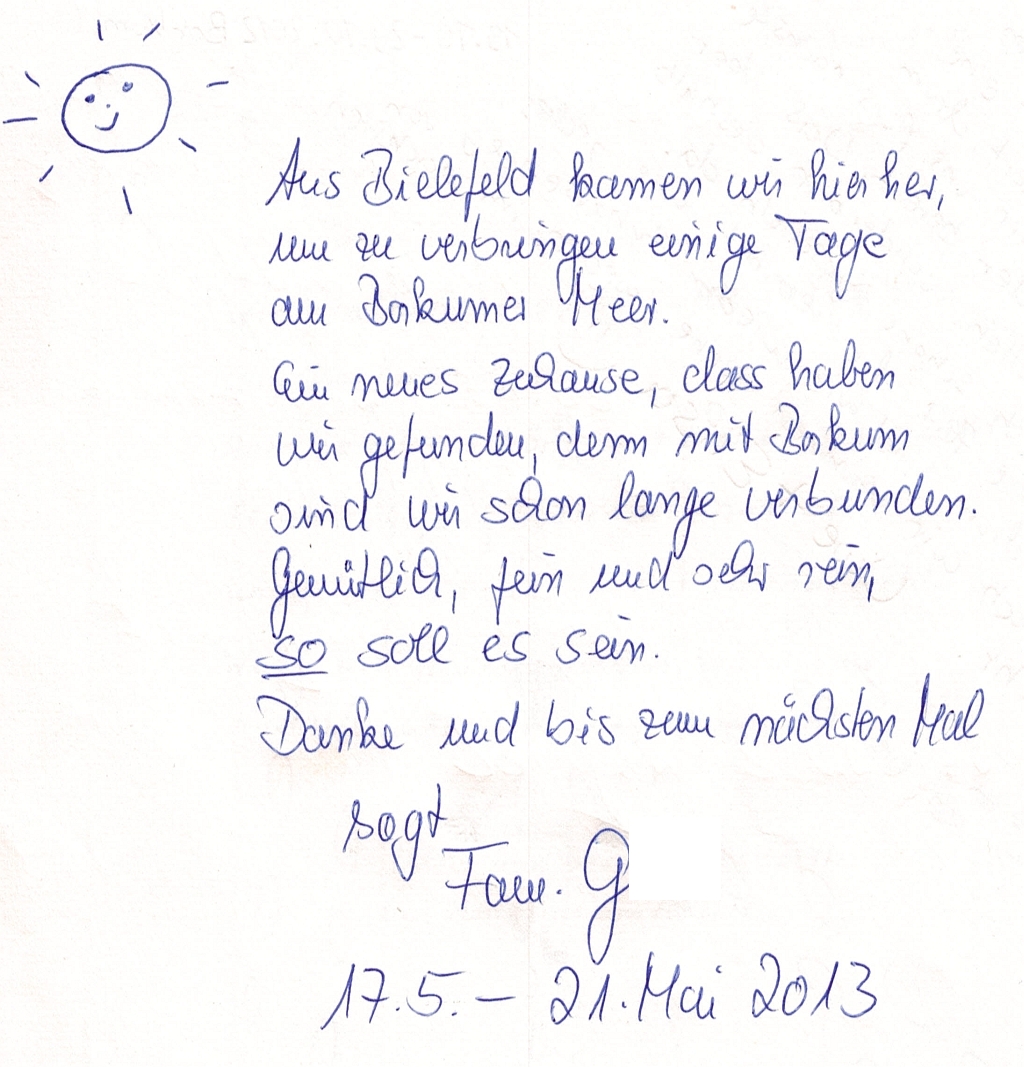 Aus Bielefeld kamen wir hierher,
um zu verbringen einige Tage
am Borkumer Meer.
Ein neues Zuhause, dass haben
wir gefunden, denn mit Borkum
sind wir schon lange verbunden.
Gemütlich, fein und sehr rein,
so soll es sein.
Danke und bis zum nächsten Mal
sagt
Fam. G
17.5. – 21. Mai 2013